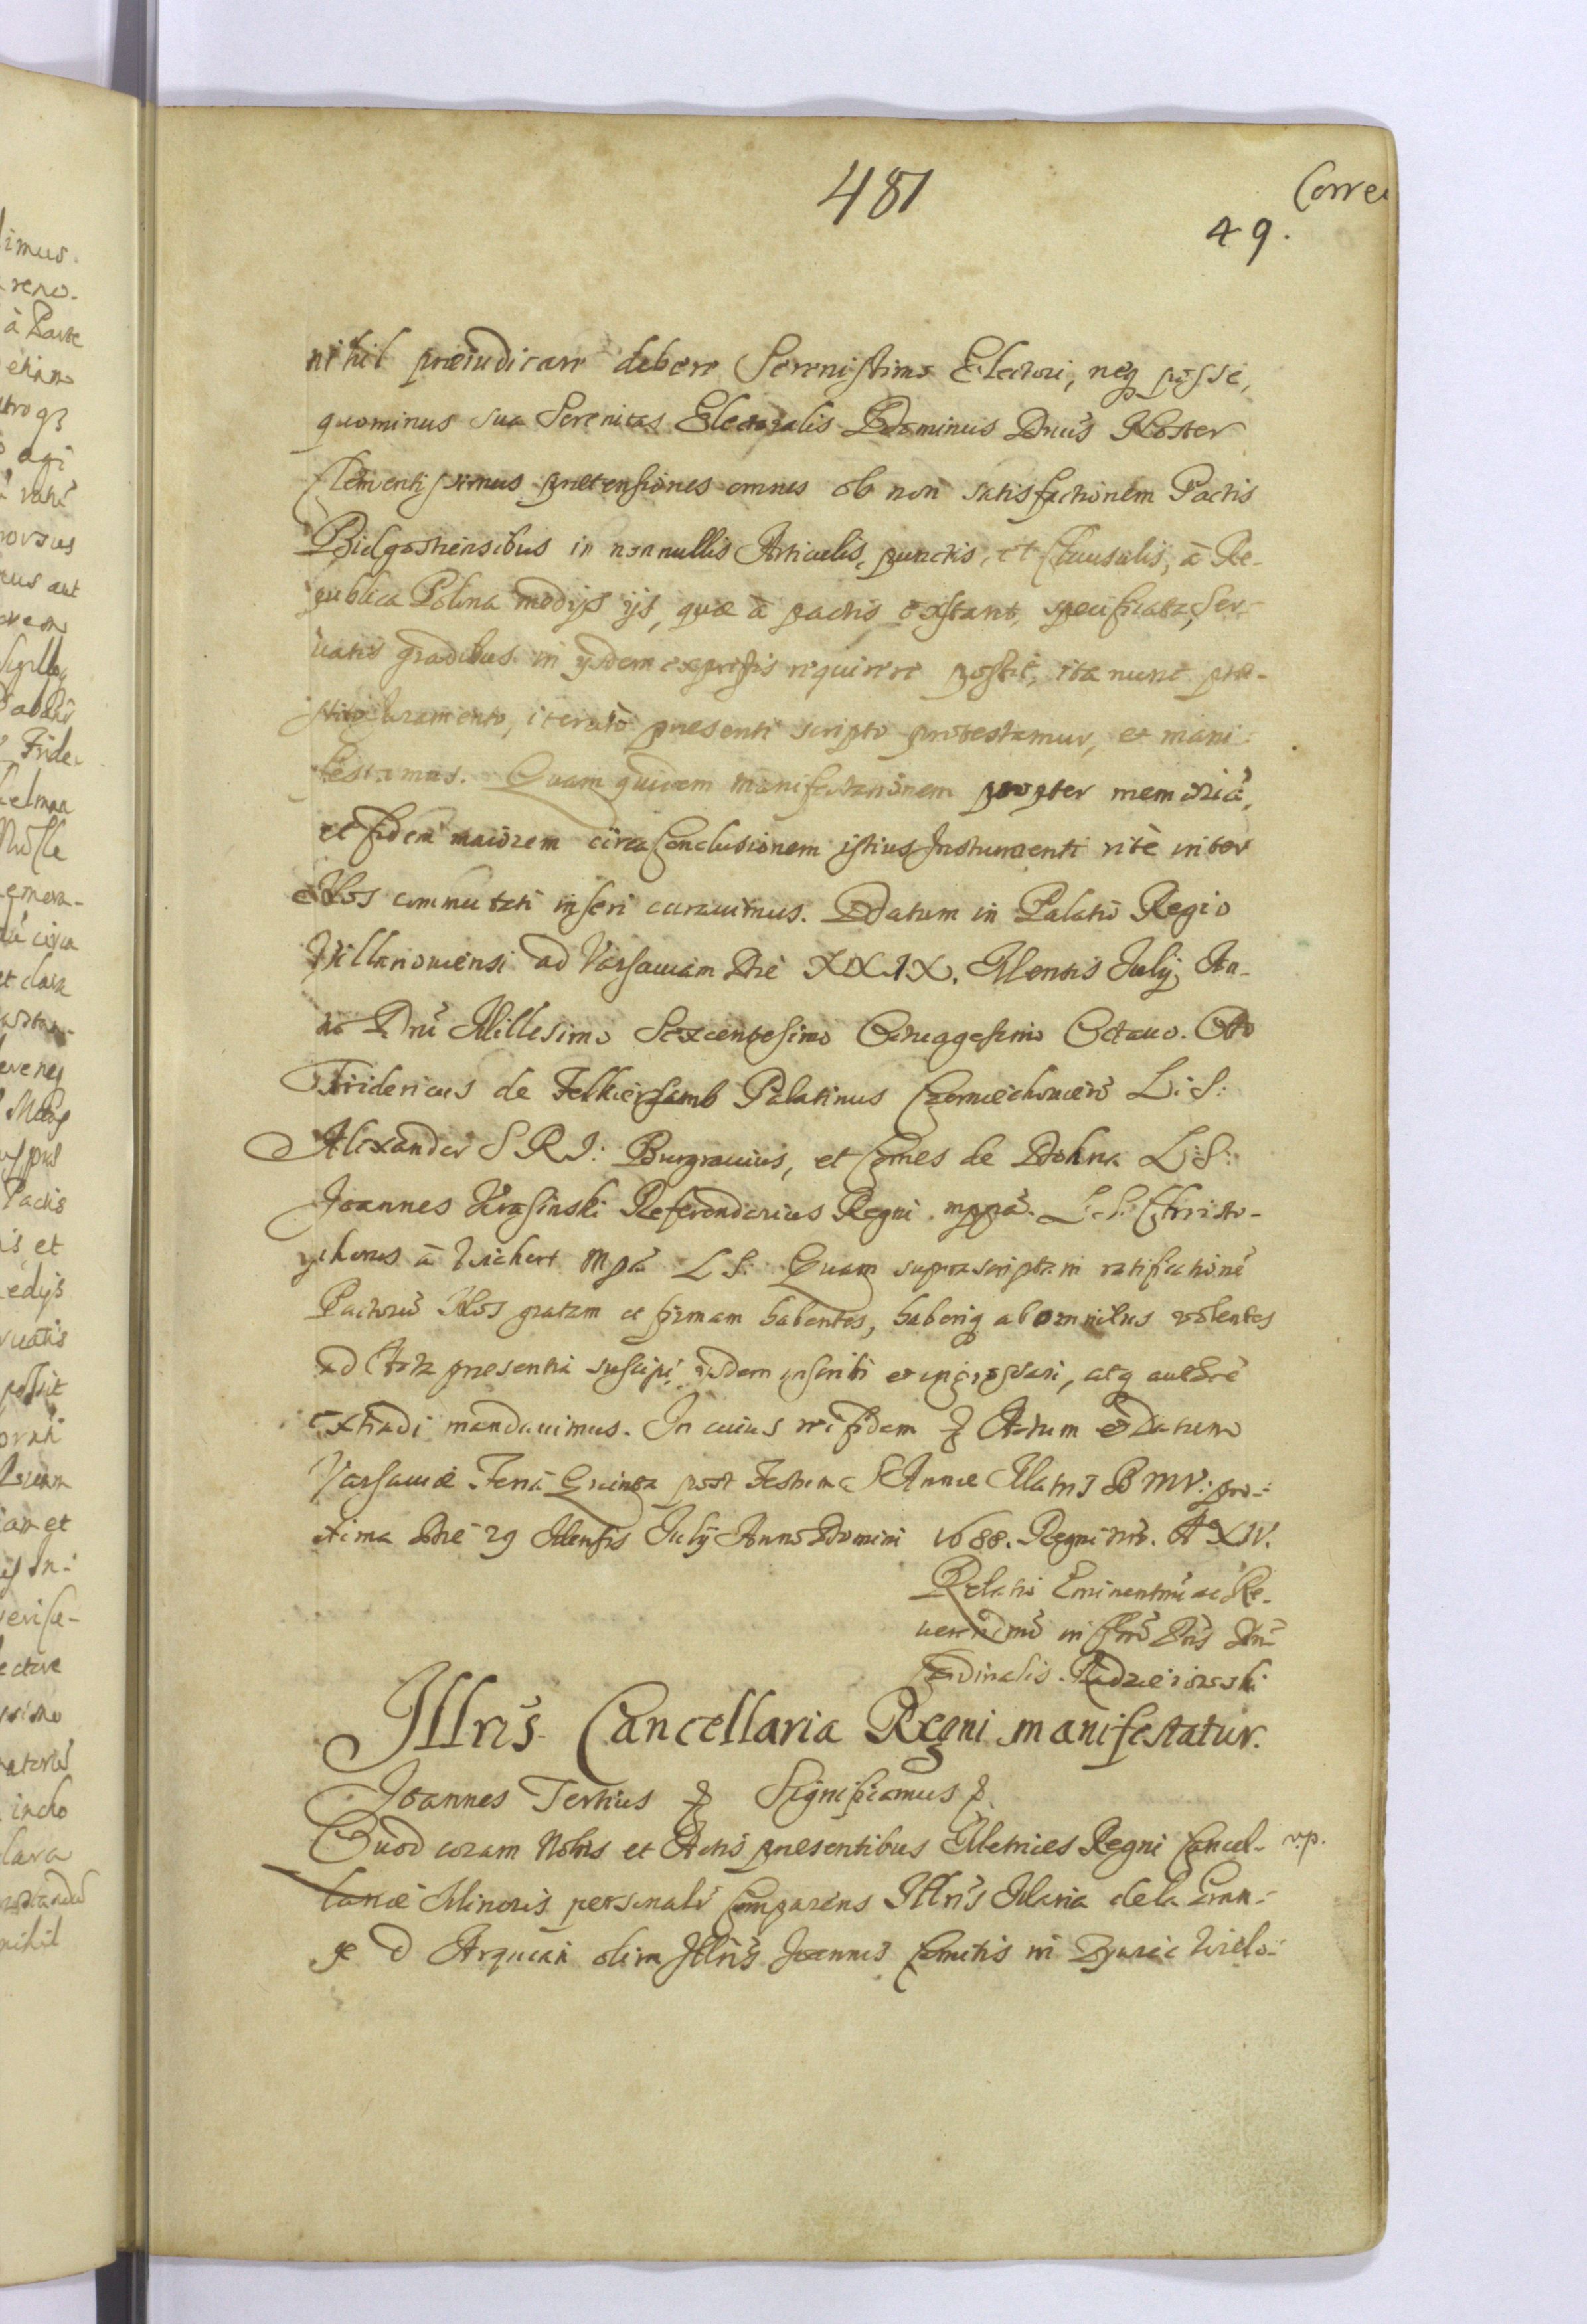 481
Corre
49.
nihil præiudicare debere Serenissimo Electori, neq posse,
quominus sua Serenitas Electoralis Dominus Dnūs Noster
Clementissimus prætensiones omnes ob non satisfactionem Pactis
Bidgostiensibus in nonnullis Articulis, punctis, et Clausulis, à Re-
publica Polona medijs ijs, quæ à pactis extant, specificata, ser-
uatis gradibus in ijsdem expressis requirere possit, ita nunc præ-
stito Juramento, iteratò præsenti scripto protestamur, et mani-
festamus. Quam quidem manifestationem propter memoriā,
et fidem maiorem circa Conclusionem istius Instrumenti ritè inter
Nos commutati inseri curauimus. Datum in Palatio Regio
Villanouiensi ad Varsauiam Die XXIX. Mensis Julij An-
no Dni Millesimo Sexcentesimo Octuagesimo Octauo. Otto
Fridericus de Felkiersamb Palatinus Czerniechouien̄ L: S:
Alexander S R I: Burgrauius, et Comes de Dohna L: S:
Joannes Krasinski Referendarius Regni mppā. L. S. Christo-
phorus à Wichert mpā L S: Quam suprascriptam ratificationē
Pactorū Nos gratam et firmam habentes, haberiq ab omnibus volentes
ad Acta præsentia suscipi, ijsdem inscribi et ingrossari, atq autenticè
extradi mandauimus. In cuius rei fidem Actum et Datum
Varsauiæ Feria Quinta post Festum S Annæ Matris B M V: pro-
xima Die 29 Mensis Julij Anno Domini 1688. Regni nri. Aº XIV.
Relatio Eminentmi ac Re-
uerendmi in Chro Pris Dni
Cardinalis Radzieiowski
Illris Cancellaria Regni manifestatur.
Joannes Tertius Significamus
Quod coram Nobis et Actis præsentibus Metrices Regni Cancel- v.p.
lariæ Minoris personalr Comparens Illris Maria de la Gran-
ge d Arquian olim Illris Joannis Comitis in Zywiec Wielo-